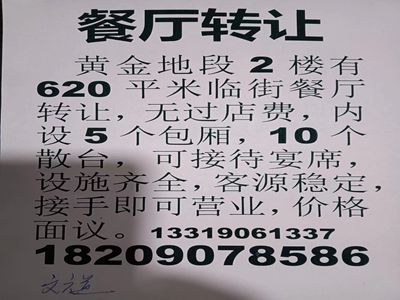 餐厅转让
黄金地段2楼有
620平米临街餐厅
转让，无过店费，内
设5个包厢，10个
散台，可接待宴席，
设施齐全，客源稳定，
接手即可营业，价格
面议。13319061337
18209078586